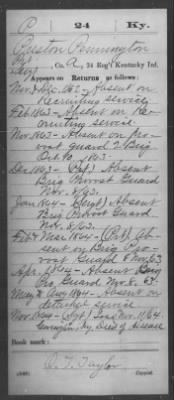 P 24 Ky.
Preston Pennington
Co. A, 24 Reg't Kentucky Inf.
Appears on Returns as follows:
Nov & Dec 1862 - Absent on
Recruiting service
Feb 1863 - Absent on Re-
cruiting service
Nov 1863 - Absent on pro-
vost guard 2 Brig
Oct 10, 1863.
Dec 1863 - Absent
Brig Provost Guard
Nov. 8/63.
Jan 1864 - (Sergt) Absent
Brig Provost Guard
Nov. 8/63.
Feb & Mar 1864 - Ab-
sent on Brig Pro-
vost Guard Nov 8/63
Apr. 1864 - Absent Brig
Pro. Guard Nov. 8. 63.
May & Aug 1864 - Absent on
detached service
Nov 1864 - (Sgt) Loss Nov. 11/64
Ky. Died of disease
Book mark:
Taylor
Copyist.